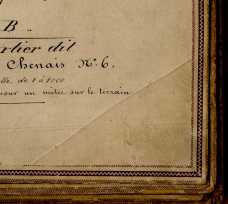 B
rtier dit
Chenais N° 6.
lle, de 1 à 1000
pour un mètre sur le terrain